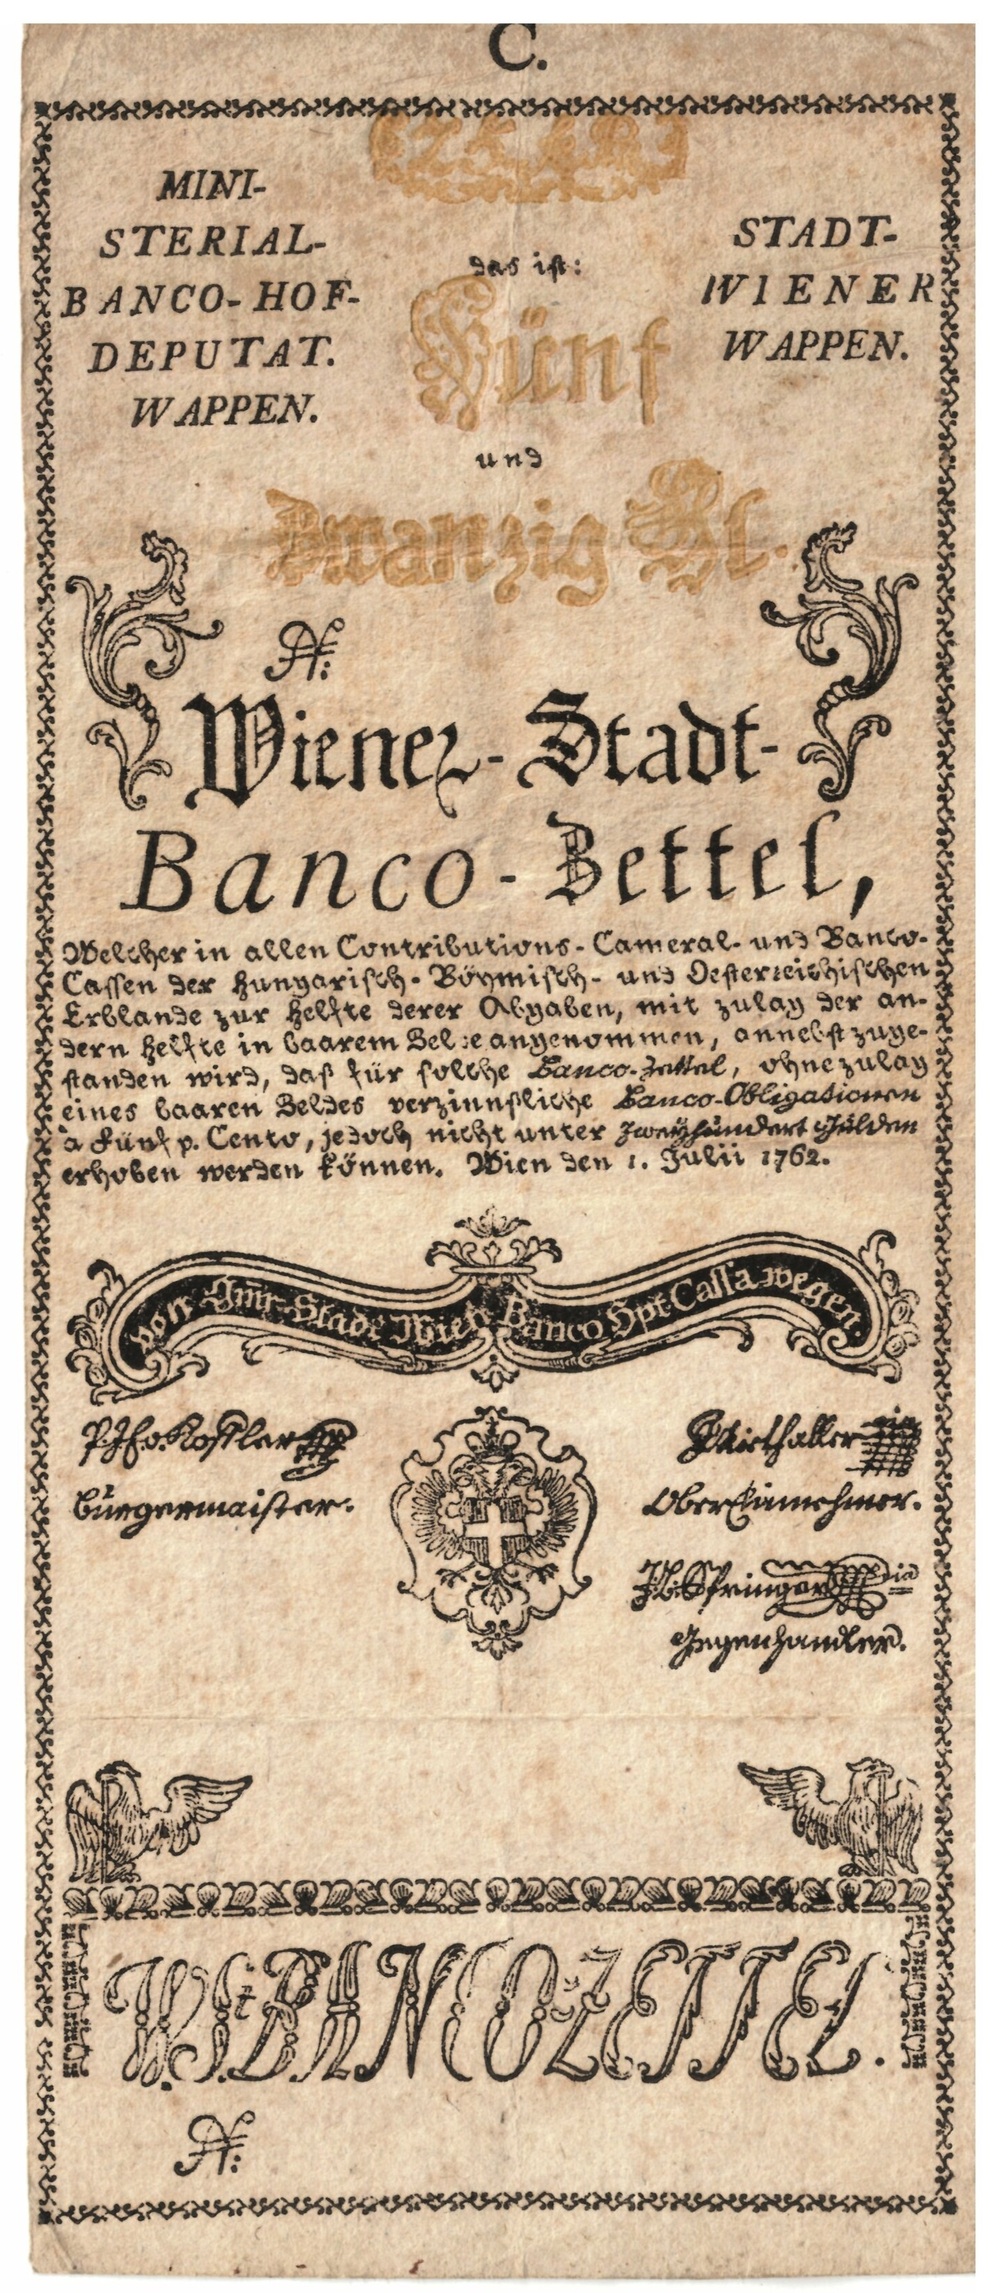 C.
25 fl.
MINI-
STERIAL-
BANCO-HOF-
DEPUTAT.
WAPPEN.
STADT-
WIENER
WAPPEN.
das ist:
Fünf
und
Zwanzig Fl.
N:
Wiener-Stadt-
Banco-Zettel,
Welcher in allen Contributions-Cameral- und Banco-
Cassen der Hungarisch-Böhmisch- und Oesterreichischen
Erblande zur Helfte derer Abgaben, mit zulag der an-
dern Helfte in baarem Gelde angenommen, annebst zuge-
standen wird, daß für solche Banco-Zettel, ohne zulag
eines baaren Geldes verzinnsliche Banco-Obligationen
à Fünf p. Cento, jedoch nicht unter Zweyhundert Gülden
erhoben werden können. Wien den 1. Julii 1762.
von Gmr Stadt Wien Banco Hpt Cassa wegen
Bürgermaister.
OberEinnehmer.
Gegenhandler.
W. St. BANCO ZETTEL.
N: